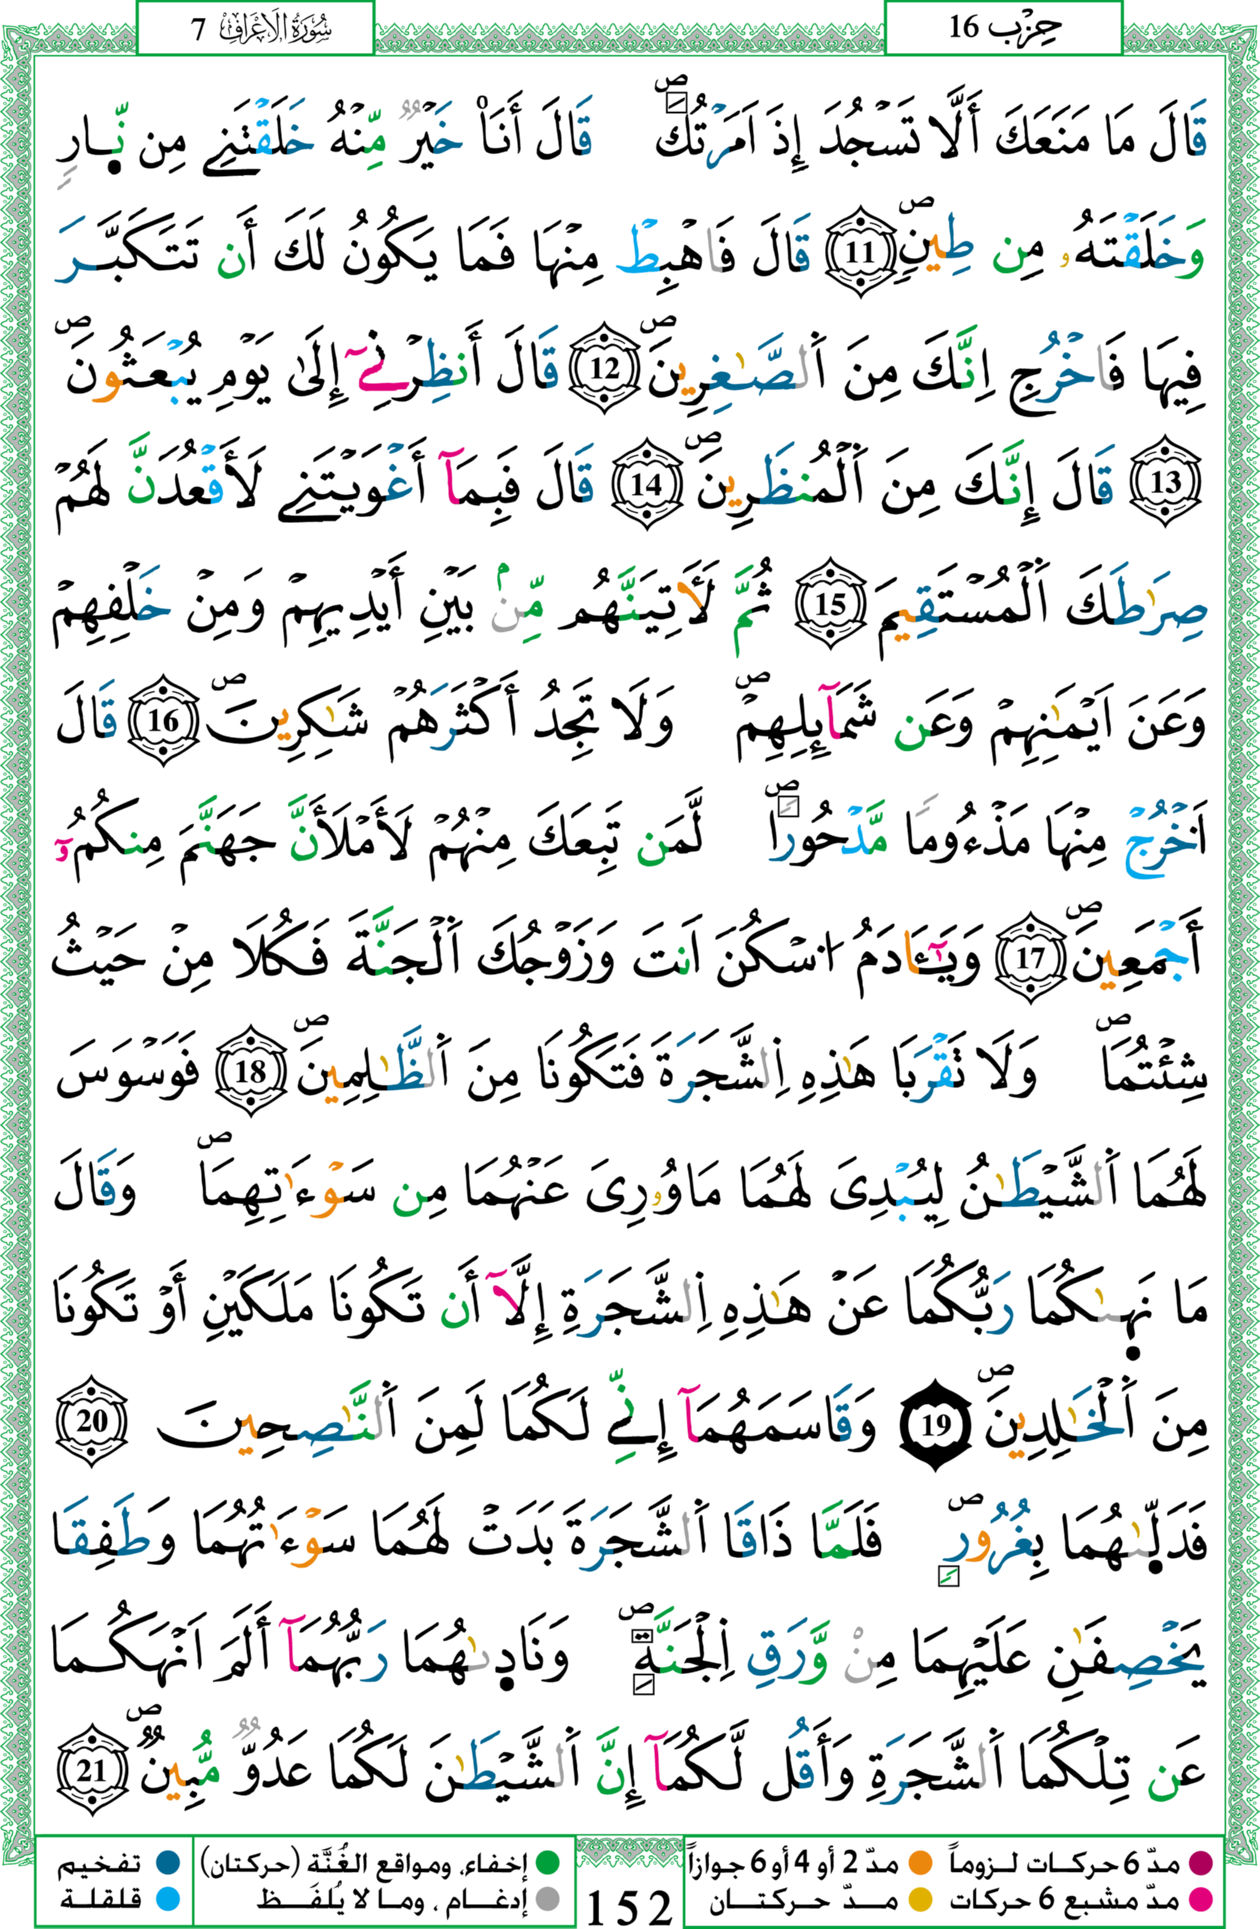 حِزْب 16
سُورَةُ الَاعْرَافِ 7
قَالَ مَا مَنَعَكَ أَلَّا تَسْجُدَ إِذَ اَمَرْتُكَ ص قَالَ أَنَا۠ خَيْرٌ مِّنْهُ خَلَقْتَنِے مِن نّ۪ارٍ
وَخَلَقْتَهُۥ مِن طِينٍ ص 11 قَالَ فَاهْبِطْ مِنْهَا فَمَا يَكُونُ لَكَ أَن تَتَكَبَّرَ
فِيهَا فَاخْرُجِ اِنَّكَ مِنَ اَ۬لصَّٰغِرِينَ ص 12 قَالَ أَنظِرْنِےٓ إِلَىٰ يَوْمِ يُبْعَثُونَ ص
13 قَالَ إِنَّكَ مِنَ اَ۬لْمُنظَرِينَ ص 14 قَالَ فَبِمَآ أَغْوَيْتَنِے لَأَقْعُدَنَّ لَهُمْ
صِرَٰطَكَ اَ۬لْمُسْتَقِيمَ 15 ثُمَّ لَأَتِيَنَّهُم مِّنۢ بَيْنِ أَيْدِيهِمْ وَمِنْ خَلْفِهِمْ
وَعَنَ اَيْمَٰنِهِمْ وَعَن شَمَآئِلِهِمْ ص وَلَا تَجِدُ أَكْثَرَهُمْ شَٰكِرِينَ ص 16 قَالَ
اَ۟خْرُجْ مِنْهَا مَذْءُوماٗ مَّدْحُوراٗ ص لَّمَن تَبِعَكَ مِنْهُمْ لَأَمْلَأَنَّ جَهَنَّمَ مِنكُمُۥٓ
أَجْمَعِينَ ص 17 وَيَٰٓـَٔادَمُ اُ۟سْكُنَ اَنتَ وَزَوْجُكَ اَ۬لْجَنَّةَ فَكُلَا مِنْ حَيْثُ
شِئْتُمَا ص وَلَا تَقْرَبَا هَٰذِهِ اِ۬لشَّجَرَةَ فَتَكُونَا مِنَ اَ۬لظَّٰلِمِينَ ص 18 فَوَسْوَسَ
لَهُمَا اَ۬لشَّيْطَٰنُ لِيُبْدِىَ لَهُمَا مَا وُۥرِىَ عَنْهُمَا مِن سَوْءَٰتِهِمَا ص وَقَالَ
مَا نَه۪ىٰكُمَا رَبُّكُمَا عَنْ هَٰذِهِ اِ۬لشَّجَرَةِ إِلَّآ أَن تَكُونَا مَلَكَيْنِ أَوْ تَكُونَا
مِنَ اَ۬لْخَٰلِدِينَ ص 19 وَقَاسَمَهُمَآ إِنِّے لَكُمَا لَمِنَ اَ۬لنَّٰصِحِينَ 20
فَدَلّ۪ىٰهُمَا بِغُرُورٍ ص فَلَمَّا ذَاقَا اَ۬لشَّجَرَةَ بَدَتْ لَهُمَا سَوْءَٰتُهُمَا وَطَفِقَا
يَخْصِفَٰنِ عَلَيْهِمَا مِنْ وَّرَقِ اِ۬لْجَنَّةِ ص وَنَاد۪ىٰهُمَا رَبُّهُمَآ أَلَمَ اَنْهَكُمَا
عَن تِلْكُمَا اَ۬لشَّجَرَةِ وَأَقُل لَّكُمَآ إِنَّ اَ۬لشَّيْطَٰنَ لَكُمَا عَدُوٌّ مُّبِينٌ ص 21
مدّ 6 حركات لـزوماً مدّ 2 أو 4 أو 6 جوازاً
مدّ مشبع 6 حركات مـدّ حركتـان
152
إخفاء، ومواقع الغُنَّة (حركتان) تفخيم
إدغام ، وما لا يُلفَـظ قلقلة